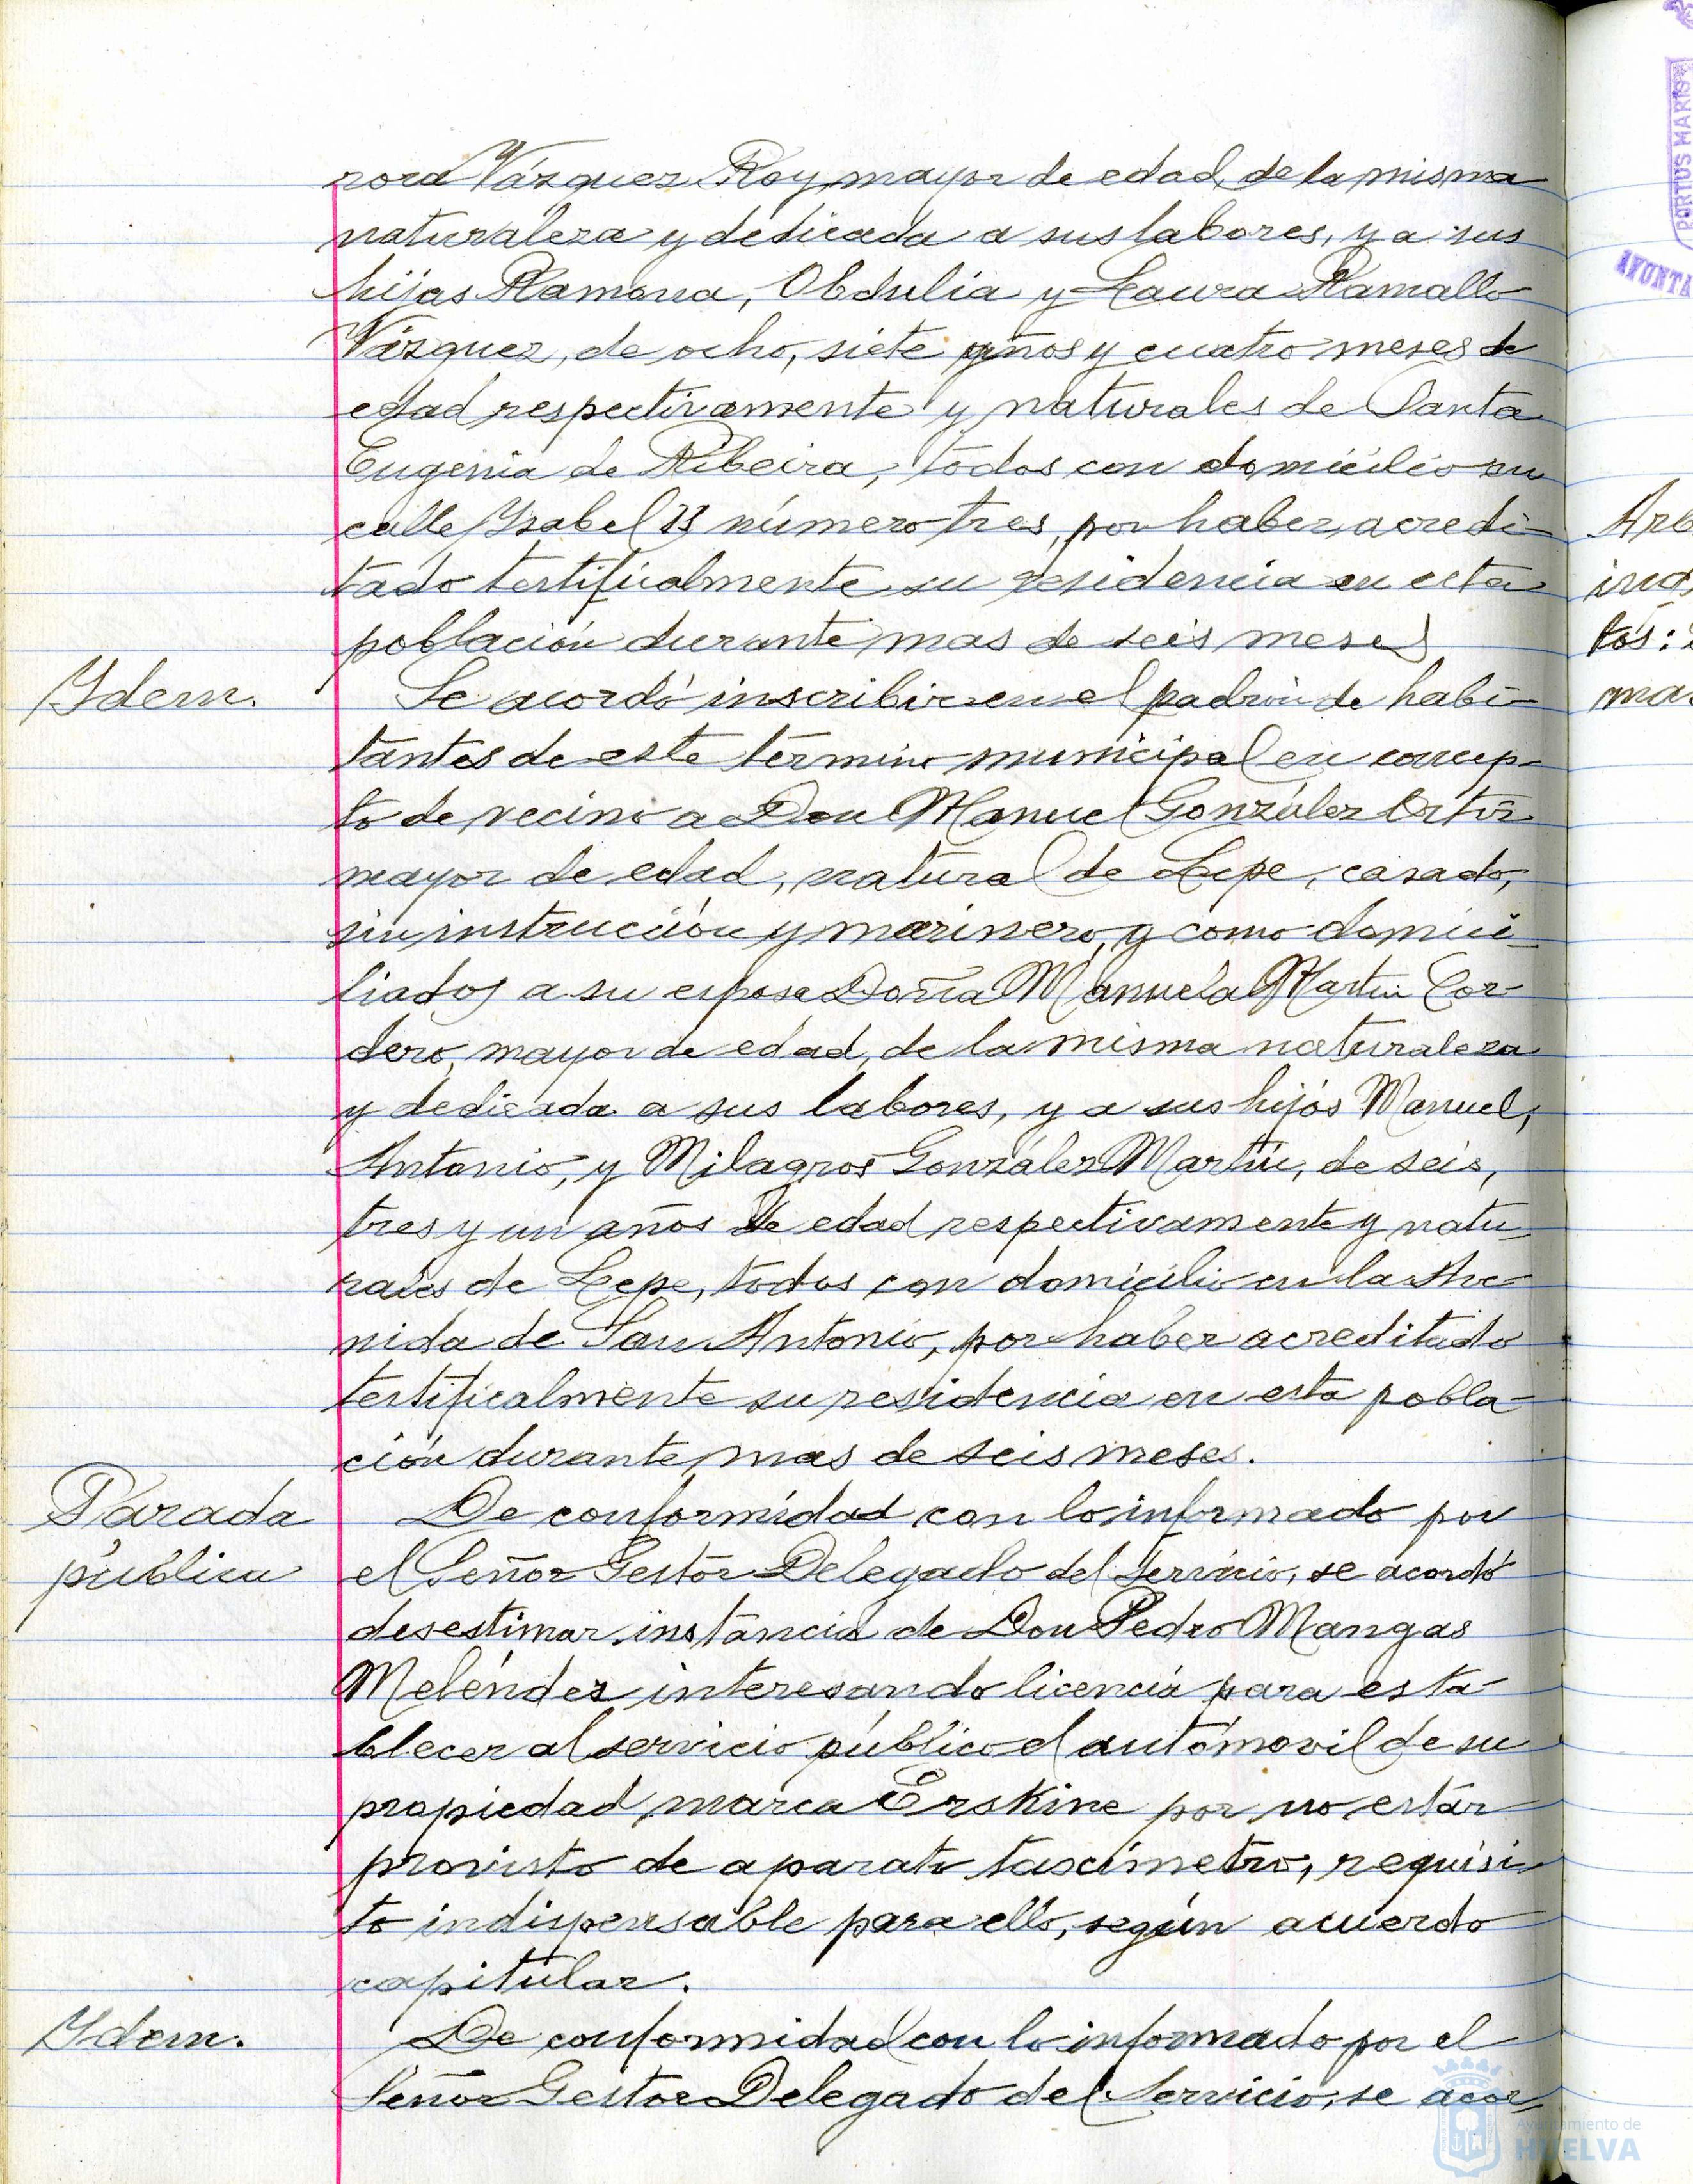 nora Vázquez Roy mayor de edad, de la misma
naturaleza y dedicada a sus labores, y a sus
hijas Ramona, Obdulia y Laura Ramallo
Vázquez, de ocho, siete años y cuatro meses de
edad respectivamente y naturales de Santa
Eugenia de Ribeira, todos con domicilio en
calle Ysabel II número tres, por haber acredi-
tado testificalmente su residencia en esta
población durante mas de seis meses
Ydem.
Se acordó inscribir en el padrón de habi-
tantes de este término municipal en concep-
to de vecino a Don Manuel González
mayor de edad, natural de Lepe, casado,
sin instrucción y marinero, y como domici-
liados a su esposa Doña Manuela Martín Cor-
dero, mayor de edad, de la misma naturaleza
y dedicada a sus labores, y a sus hijos Manuel,
Antonio, y Milagros González Martín, de seis,
tres y un años de edad respectivamente y natu-
rales de Lepe, todos con domicilio en la Ave-
nida de San Antonio, por haber acreditado
testificalmente su residencia en esta pobla-
ción durante mas de seis meses.
Parada
pública
De conformidad con lo informado por
el Señor Gestor Delegado del Servicio, se acordó
desestimar instancia de Don Pedro Mangas
Meléndez interesando licencia para esta-
blecer al servicio público el automovil de su
propiedad marca Erskine por no estar
provisto de aparato taxímetro, requisi-
to indispensable para ello, según acuerdo
capitular.
Ydem.
De conformidad con lo informado por el
Señor Gestor Delegado del Servicio, se acor-
PORTUS MARIS
AYUNTA
Arb
tos:
ma
Ayuntamiento de
HUELVA